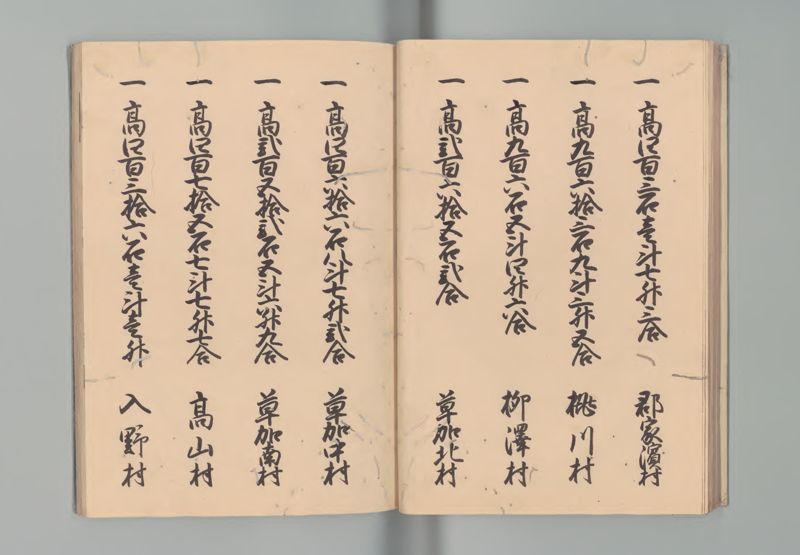 一 高四百三石壱斗七升三合 郡家濱村
一 高九百六拾三石九斗三升五合 桃川村
一 高九百六石五斗四升六合 柳澤村
一 高弐百六拾五石弐合 草加北村
一 高四百六拾六石八斗七升弐合 草加中村
一 高弐百五拾弐石五斗六升九合 草加南村
一 高四百七拾五石七斗七升七合 高山村
一 高四百三拾六石壱斗壱升 入野村